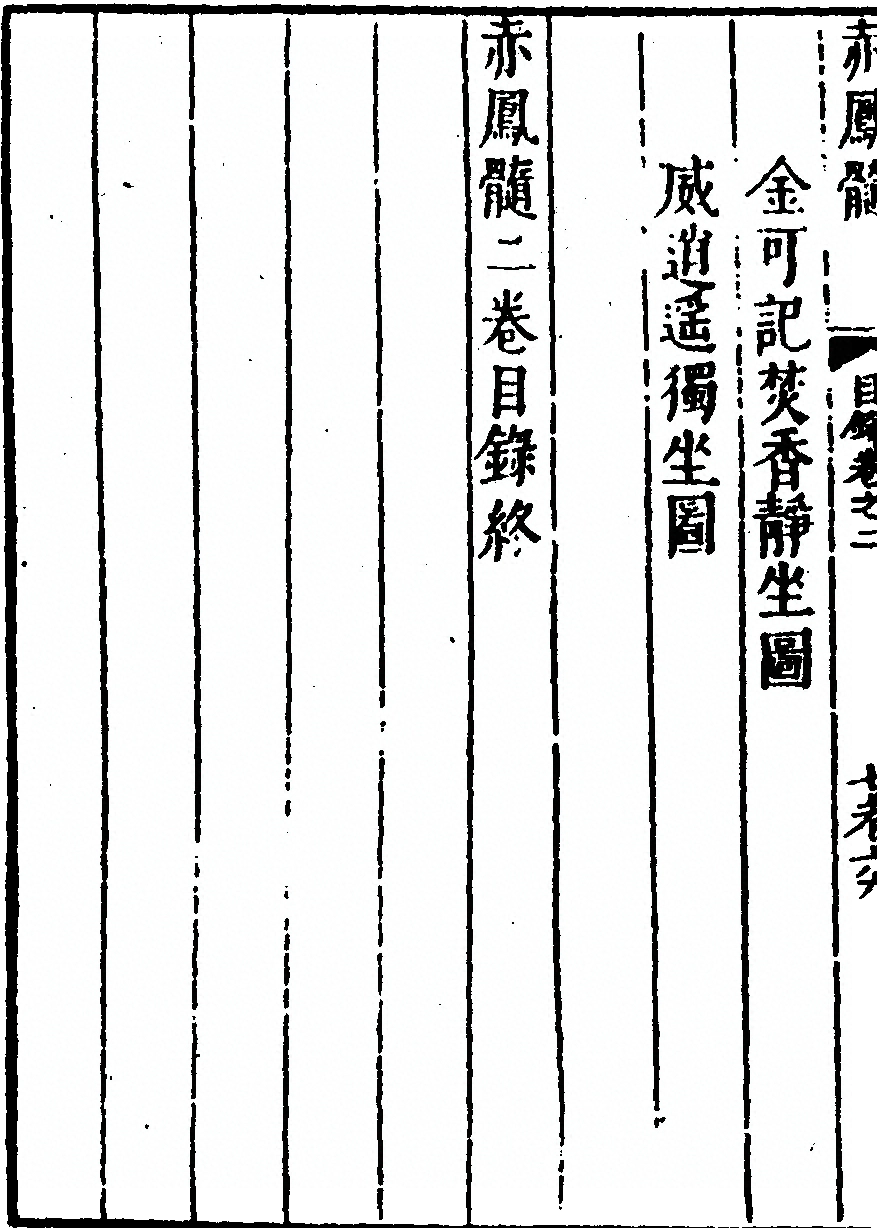 赤鳳髓 目録卷之二
金可記焚香靜坐圖
威逍遥獨坐圖
赤鳳髓二卷目錄終